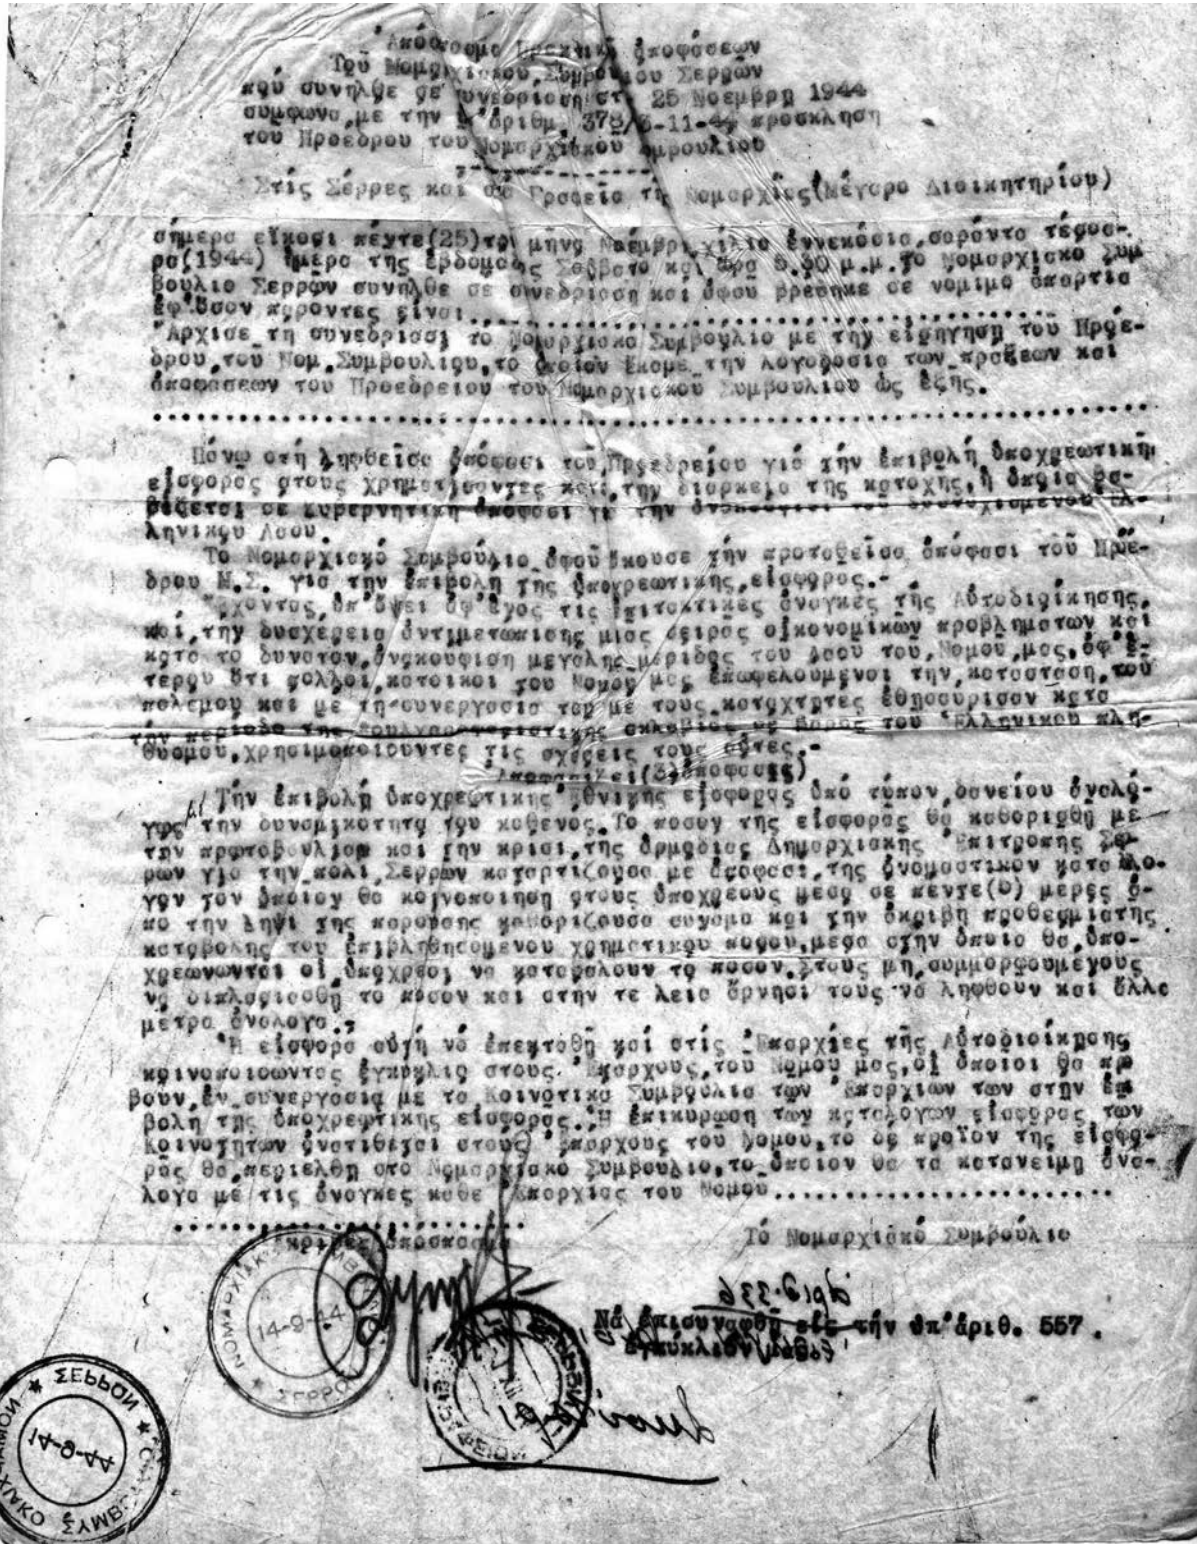 Απόσπασμα Πρακτικῶ ἀποφάσεων
Τοῦ Νομαρχιακου Συμβουλιου Σερρῶν
που συνῆλθε σε συνεδριαση στ 25 Νοεμβρη 1944
συμφωνα με την ἀριθμ. 378/3-11-44 προσκληση
του Προεδρου του Νομαρχιακου Συμβουλιου
Στίς Σέρρες και Γραφεία τῆς Νομαρχίας(Μέγαρο Διοικητηρίου)
σήμερα εἴκοσι πέντε(25) μήνα Νοέμβρη χίλια ἐννεκόσια σαράντα τέσσε-
ρα(1944) ἡμέρα της ἑβδομαδας Σαββατο και ὥρα 5.30 μ.μ. το Νομαρχιακο Συμ
βουλιο Σερρῶν συνηλθε σε συνεδριαση και ἀφοῦ βρεθηκε σε νομιμο ἀπαρτια
ἐφ'ὅσον παροντες εἶναι..............................
Ἄρχισε τη συνεδριασι το Νομαρχιακο Συμβουλιο με την εἰσηγηση του Προε-
δρου του Νομ.Συμβουλιου,το ὁποιον ἔκαμε την λογοδοσια των πραξεων και
ἀποφασεων του Προεδρειου του Νομαρχιακου Συμβουλιου ὡς ἑξῆς.
..............................
Πάνω στή ληφθεῖσα ἀπόφασι τοῦ Προεδρείου γιά τήν ἐπιβολή ὑποχρεωτικῆς
εἰσφορας στους χρηματισαντες κατα την διαρκεια της κατοχης, ἡ ὁποια βα-
σιζεται σε κυβερνητικη ἀποφασι για την ἀνακουφισι του δυστυχισμενου ἑλ-
ληνικου Λαου.
Το Νομαρχιακό Συμβούλιο ἀφοῦ ἄκουσε τήν προταθεῖσα ἀπόφασι τοῦ Προε-
δρου Ν.Σ. για την ἐπιβολη της ὑποχρεωτικης εἰσφορας.-
Ἔχοντας ὑπ'ὄψει ἀφ'ἑνος τις ἐπιτακτικες ἀναγκες τῆς Αὐτοδιοίκησης,
και την δυσχερεια ἀντιμετωπισης μιας σειρας οἰκονομικων προβληματων και
κατα το δυνατον ἀνακουφιση μεγαλης μεριδας του Λαου του Νομου μας,ἀφ'ἑ-
τερου ὅτι πολλοι κατοικοι του Νομου μας ἐπωφελουμενοι την κατασταση του
πολεμου και με τη συνεργασια του με τους καταχτητες ἐθησαυρισαν κατα
την περιοδο της βουλγαροφασιστικης σκλαβιας σε βαρος του Ἑλληνικου πλη-
θυσμου,χρησιμοποιουντες τις σχεσεις τους αὐτες.-
Ἀποφασιζει(3)ἀποφασις)
Τήν ἐπιβολή ὑποχρεωτικῆς ἐθνικῆς εἰσφορας ὑπο τύπον δανείου ἀναλό-
γως με την δυναμικοτητα του καθενος.Το ποσον της εἰσφορας θα καθορισθῇ με
την πρωτοβουλιαν και την κρισι της ἁρμοδιας Δημαρχιακης Ἐπιτροπης Σερ-
ρων για την πολι Σερρων καταρτιζουσα με ἀποφασι της ὀνομαστικον καταλο-
γον τον ὁποιον θα κοινοποιηση στους ὑποχρεους μεσα σε πεντε(5) μερες ἀ-
πο την ληψι της παρουσης καθοριζουσα συναμα και την ἀκριβη προθεσμια της
καταβολης του ἐπιβληθησομενου χρηματικου ποσου,μεσα στην ὁποια θα ὑπο-
χρεωνονται οἱ ὑποχρεοι να καταβαλουν το ποσον.Στους μη συμμορφουμενους
να διπλασιασθῇ το ποσον και στην τε λεια ἄρνησι τους να ληφθουν και ἄλλα
μετρα ἀναλογα.-
Ἡ εἰσφορα αὐτή νά ἐπεκταθῇ καί στίς Ἐπαρχίες τῆς Αὐτοδιοίκησης
κοινοποιωντας ἐγκυκλιο στους Ἐπαρχους του Νομου μας,οἱ ὁποιοι θα πρ
βουν ἐν συνεργασια με τα Κοινοτικα Συμβουλια των Ἐπαρχιων των στην ἐπι
βολη της ὑποχρεωτικης εἰσφορας. Ἡ ἐπικυρωση των καταλογων εἰσφορας των
Κοινοτητων ἀνατιθεται στους Ἐπαρχους του Νομου,το δε προϊον της εἰσφο-
ρας θα περιελθῃ στο Νομαρχιακο Συμβουλιο,το ὁποιον θα τα κατανειμη ἀνα-
λογα με τις ἀναγκες καθε Ἐπαρχιας του Νομου..............................
..............................
Ἀκριβες ἀποσπασμα
Τό Νομαρχιακό Συμβούλιο
ἀριθ. 336
Νά ἐπισυναφθῇ εἰς τήν ὑπ'ἀριθ. 557.
ΝΟΜΑΡΧΙΑΚΟ ΣΥΜΒΟΥΛΙΟ ΣΕΡΡΩΝ
14-9-44
ΝΟΜΑΡΧΙΑΚΟ ΣΥΜΒΟΥΛΙΟ ΣΕΡΡΩΝ
14-9-44